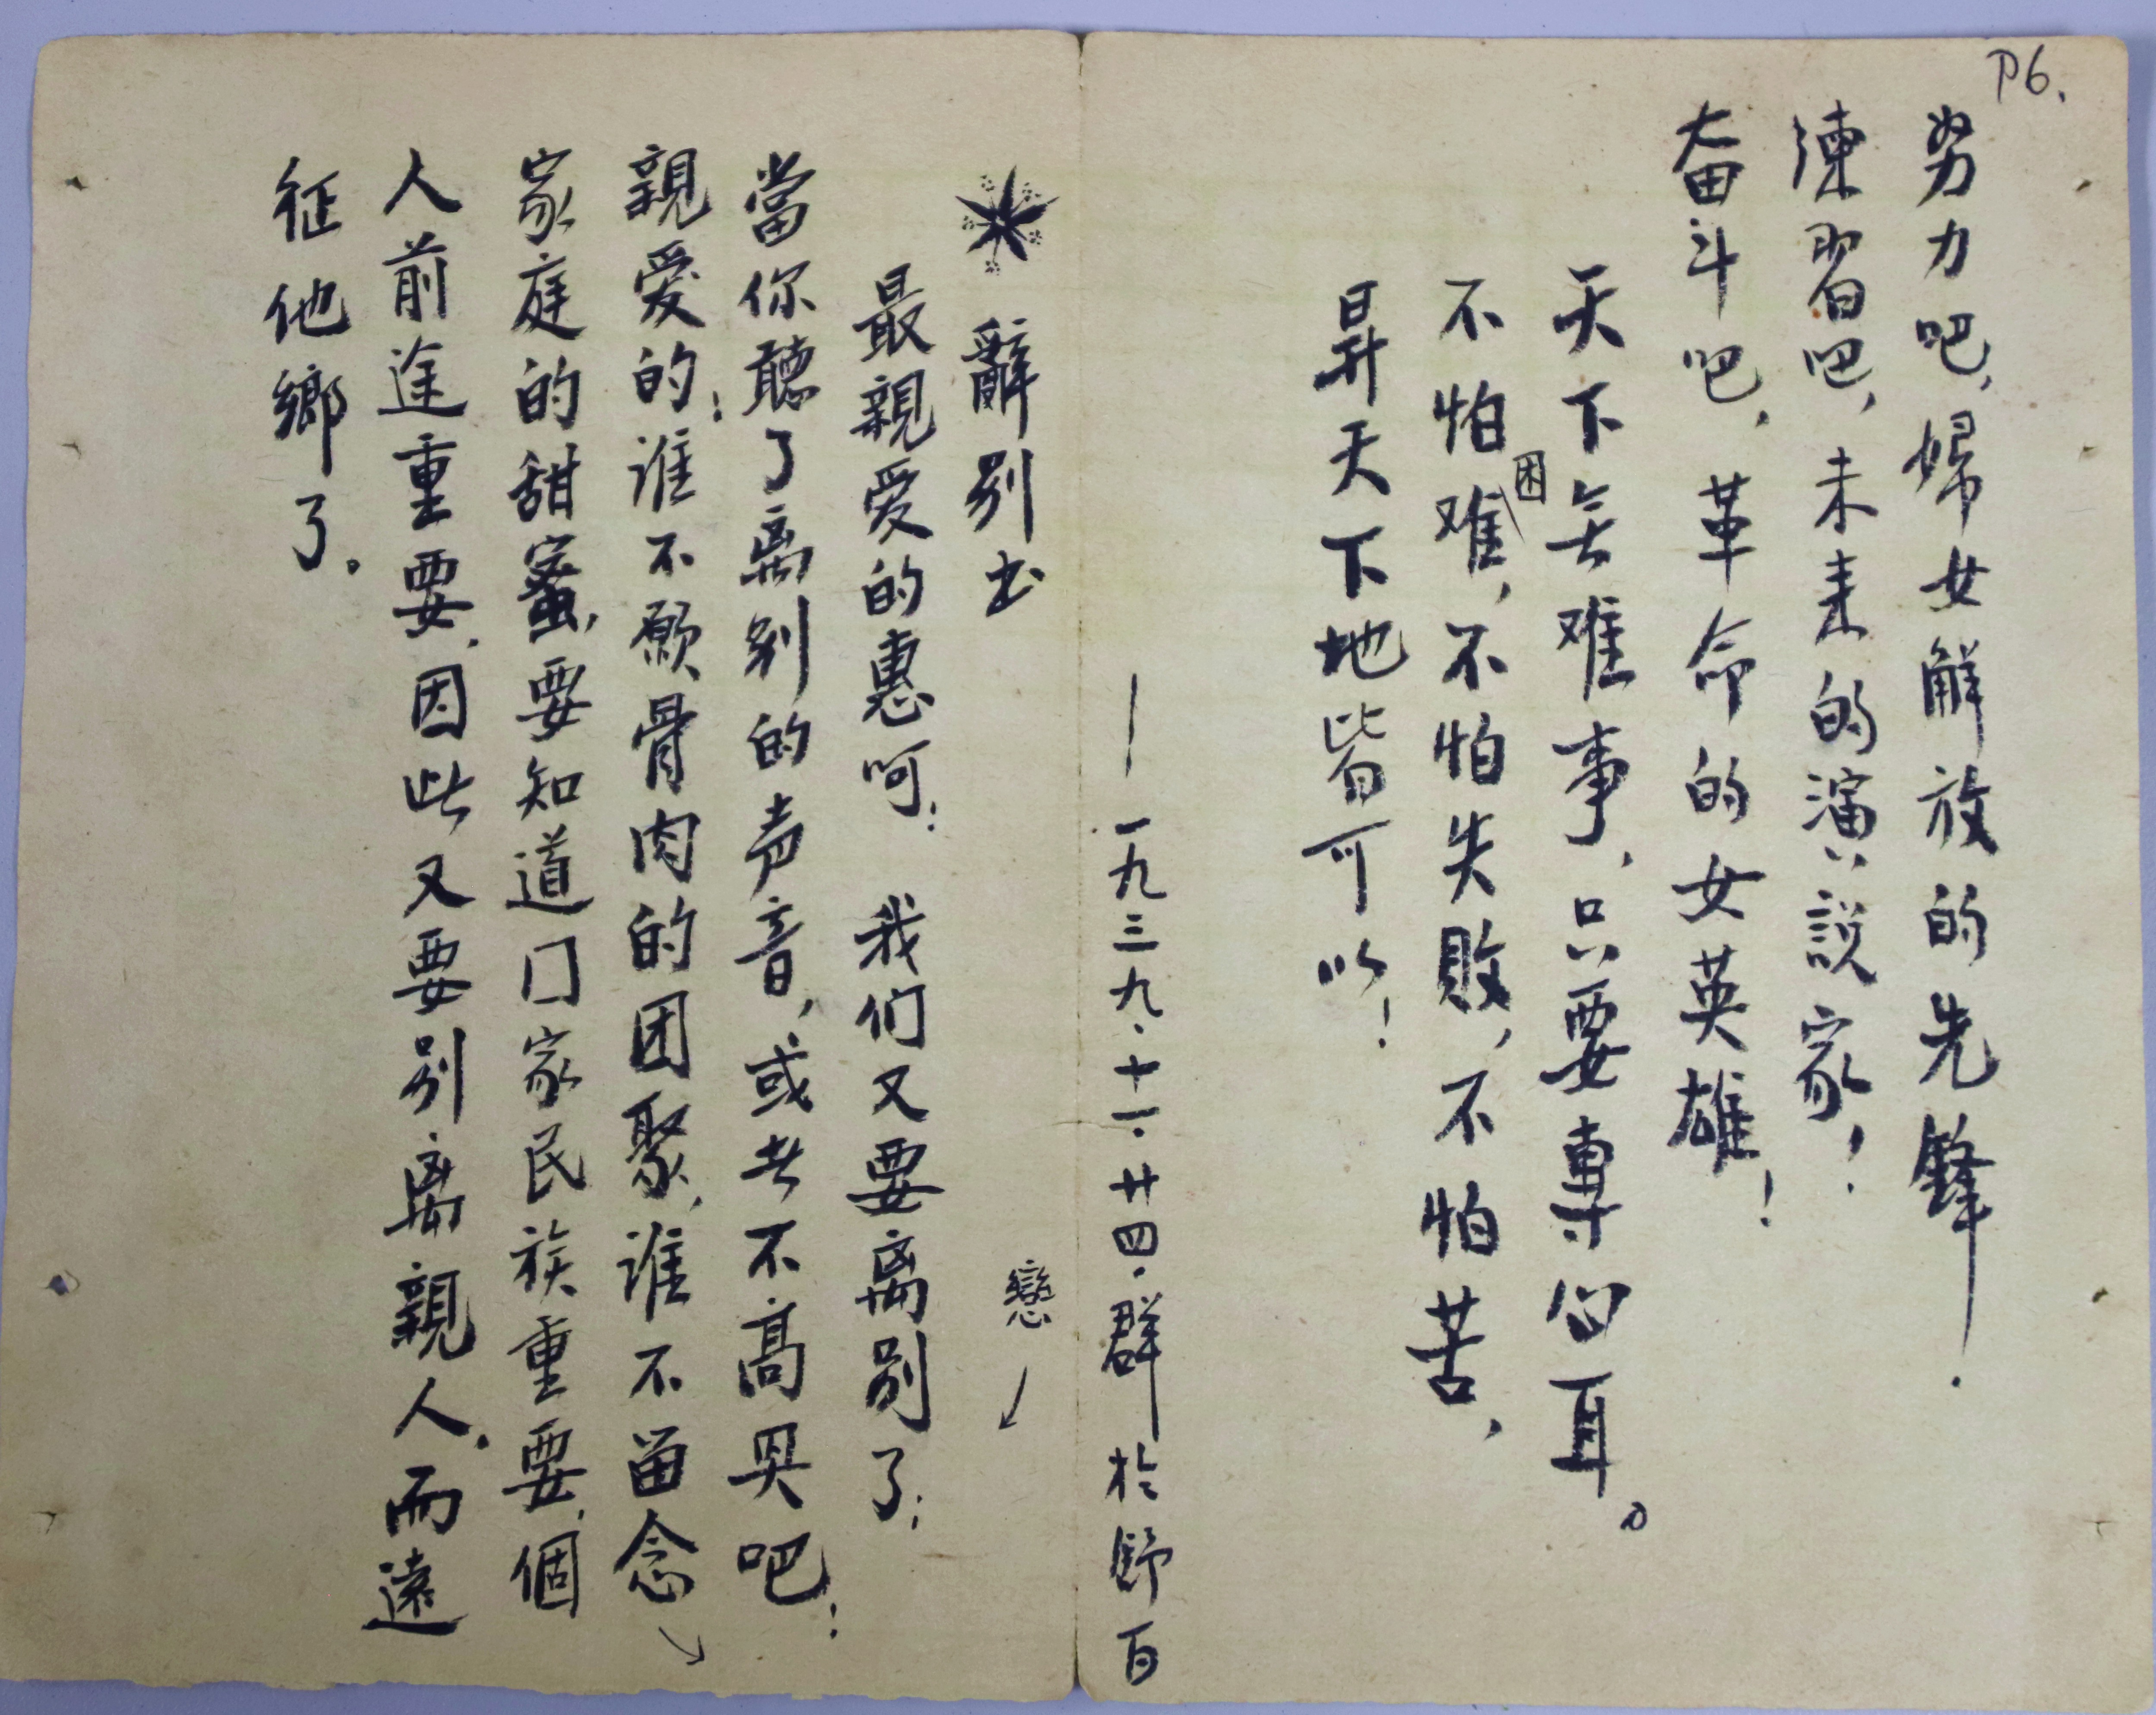 P6.
努力吧，婦女解放的先鋒．
練習吧，未来的演說家！
奋斗吧，革命的女英雄！
天下无难事，只要專心耳。
不怕困难，不怕失敗，不怕苦，
昇天下地皆可以！
— 一九三九．十一．廿四．群於野百
戀
辭别书
最親爱的惠呵！我们又要离别了！
當你聽了离别的声音，或者不高兴吧！
親爱的！谁不願骨肉的团聚，谁不留念
家庭的甜蜜，要知道门家民族重要，個
人前途重要，因此又要别离親人，而遠
征他鄉了。